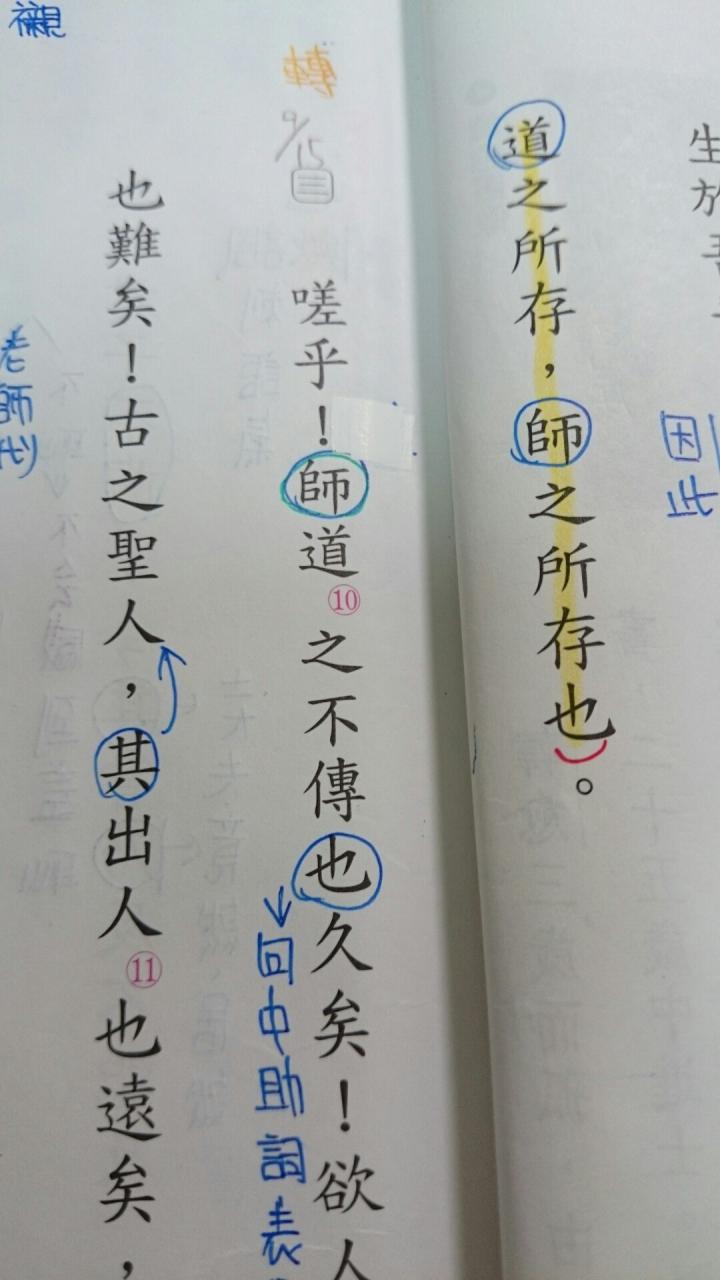 生於吾
因此
道之所存，師之所存也。
轉
9/15
三
嗟乎！師道⑩之不傳也久矣！欲人
回中助詞表
也難矣！古之聖人，其出人⑪也遠矣，
襯
老師代